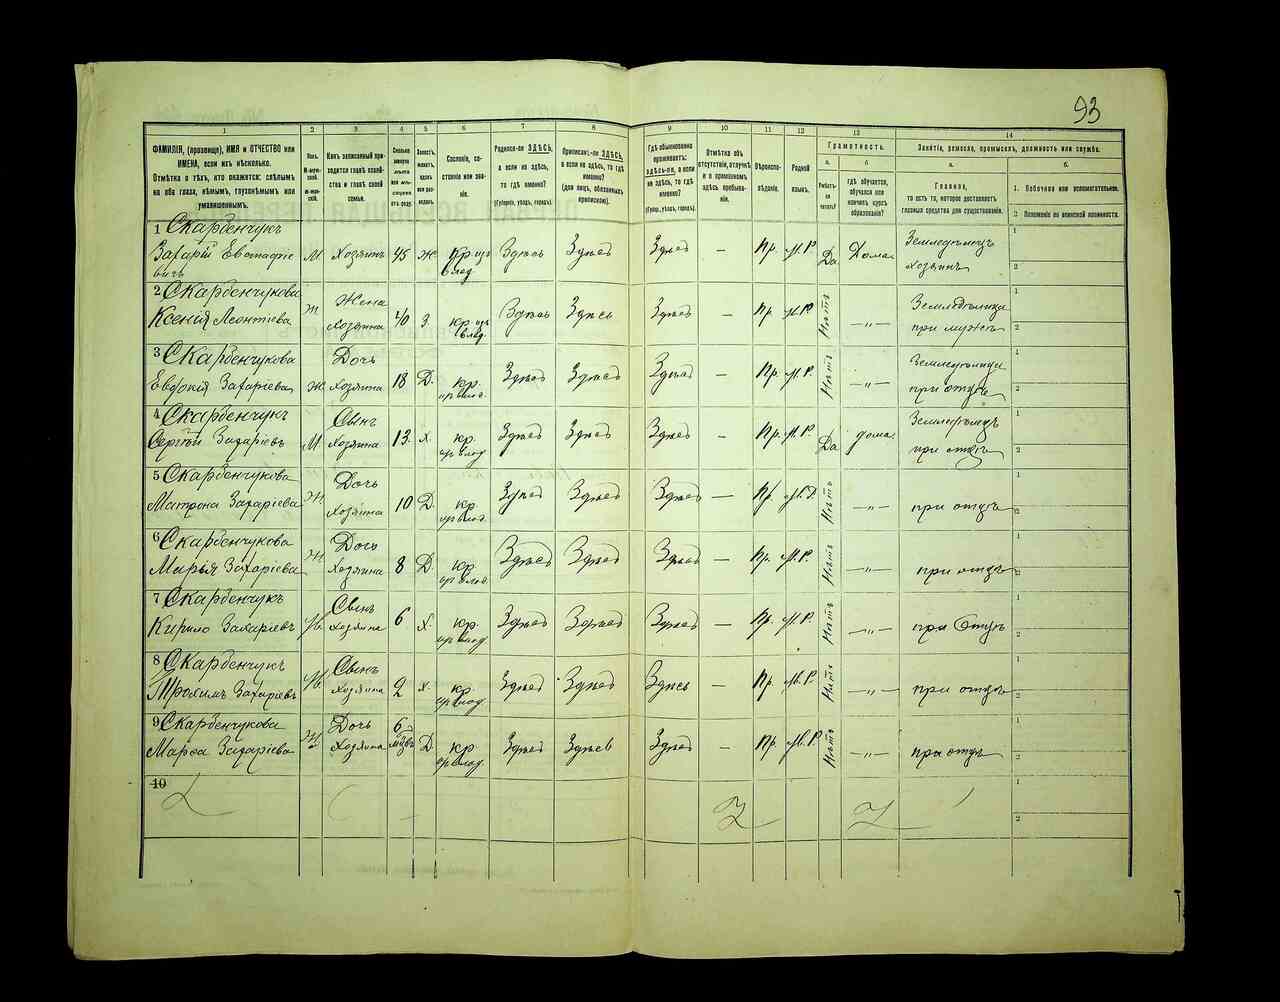 93
1
2
3
4
5
6
7
8
9
10
11
12
13
14
ФАМИЛІЯ, (прозвище), ИМЯ и ОТЧЕСТВО или
ИМЕНА, если ихъ нѣсколько.
Отмѣтка о тѣхъ, кто окажется: слѣпымъ
на оба глаза, нѣмымъ, глухонѣмымъ или
умалишеннымъ.
Полъ.
М-мужской.
Ж-женскій.
Какъ записанный приходится главѣ хозяйства и главѣ своей семьи.
Сколько минуло лѣтъ или мѣсяцевъ отъ роду.
Холостъ, женатъ, вдовъ или разведенъ.
Сословіе, состояніе или званіе.
Родился-ли ЗДѢСЬ,
а если не здѣсь,
то гдѣ именно?
(Губернія, уѣздъ, городъ).
Приписанъ-ли ЗДѢСЬ,
а если не здѣсь, то гдѣ
именно?
(для лицъ, обязанныхъ
припискою).
Гдѣ обыкновенно
проживаетъ:
здѣсь-ли, а если
не здѣсь, то гдѣ
именно?
(Губерн., уѣздъ, городъ).
Отмѣтка объ
отсутствіи, отлучкѣ
и о временномъ
здѣсь пребываніи.
Вѣроисповѣданіе.
Родной
языкъ.
Грамотность.
а.
Умѣетъ-ли
читать?
б.
гдѣ обучается,
обучался или
кончилъ курсъ
образованія?
Занятіе, ремесло, промыселъ, должность или служба.
а.
Главное,
то есть то, которое доставляетъ
главныя средства для существованія.
б.
1. Побочное или вспомогательное.
2. Положеніе по воинской повинности.
1 Скарбенчукъ
Захарій Евстафіевичъ
М
Хозяинъ
45
Ж
Кр. изъ влад.
Здѣсь
Здѣсь
Здѣсь
—
Пр.
М.Р.
Да
Дома
Земледѣлецъ
хозяинъ
1
2
2 Скарбенчукова
Ксенія Леонтіева
Ж
Жена
хозяина
40
З.
кр. изъ влад.
Здѣсь
Здѣсь
Здѣсь
—
Пр.
М.Р.
Нѣтъ
—„—
Земледѣлица
при мужѣ
1
2
3 Скарбенчукова
Евдокія Захаріева
Ж
Дочь
хозяина
18
Д.
кр.
Здѣсь
Здѣсь
Здѣсь
—
Пр.
М.Р.
Нѣтъ
—„—
Земледѣлица
при отцѣ
1
2
4 Скарбенчукъ
Сергій Захаріевъ
М
Сынъ
Хозяина
13.
х.
кр.
Здѣсь
Здѣсь
Здѣсь
—
Пр.
М.Р.
Да
дома
Земледѣлецъ
при отцѣ
1
2
5 Скарбенчукова
Матрона Захаріева
Ж
Дочь
хозяина
10
Д.
кр.
Здѣсь
Здѣсь
Здѣсь
—
Пр.
М.Р.
Нѣтъ
—„—
при отцѣ
1
2
6 Скарбенчукова
Марія Захаріева
Ж
Дочь
Хозяина
8
Д.
кр.
Здѣсь
Здѣсь
Здѣсь
—
Пр.
М.Р.
Нѣтъ
—„—
при отцѣ
1
2
7 Скарбенчукъ
Кирило Захаріевъ
М.
Сынъ
Хозяина
6
Х.
кр.
Здѣсь
Здѣсь
Здѣсь
—
Пр.
М.Р.
Нѣтъ
—„—
при Отцѣ
1
2
8 Скарбенчукъ
Трохимъ Захаріевъ
М.
Сынъ
хозяина
2
х.
кр.
Здѣсь
Здѣсь
Здѣсь
—
Пр.
М.Р.
Нѣтъ
—„—
при отцѣ
1
2
9 Скарбенчукова
Марѳа Захаріева
Ж
Дочь
Хозяина
6
Д
кр.
Здѣсь
Здѣсь
Здѣсь
—
Пр.
М.Р.
Нѣтъ
—„—
при отцѣ
1
2
10
1
2